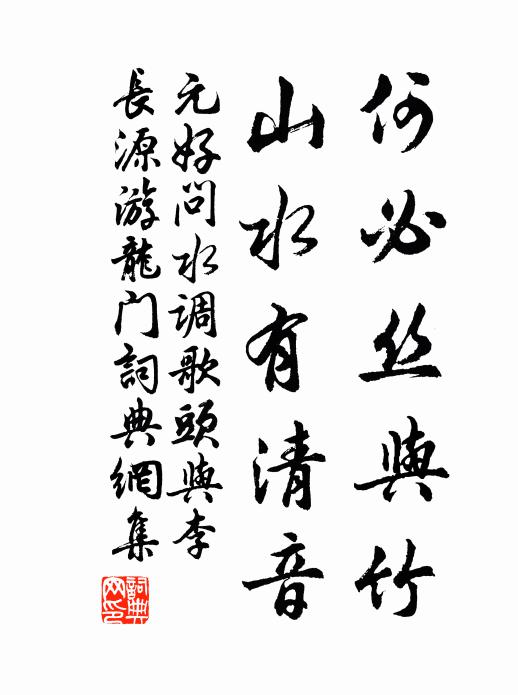 何必丝與竹
山水有清音
元好问水调歌頭與李
長源游龍门詞典網集
詞典网印